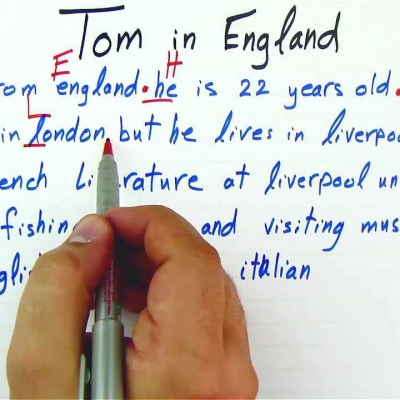 Tom in England
E H
rom england. he is 22 years old.
L
in london, but he lives in liverpoo
ench Literature at liverpool un
fishin and visiting mus
glis italian